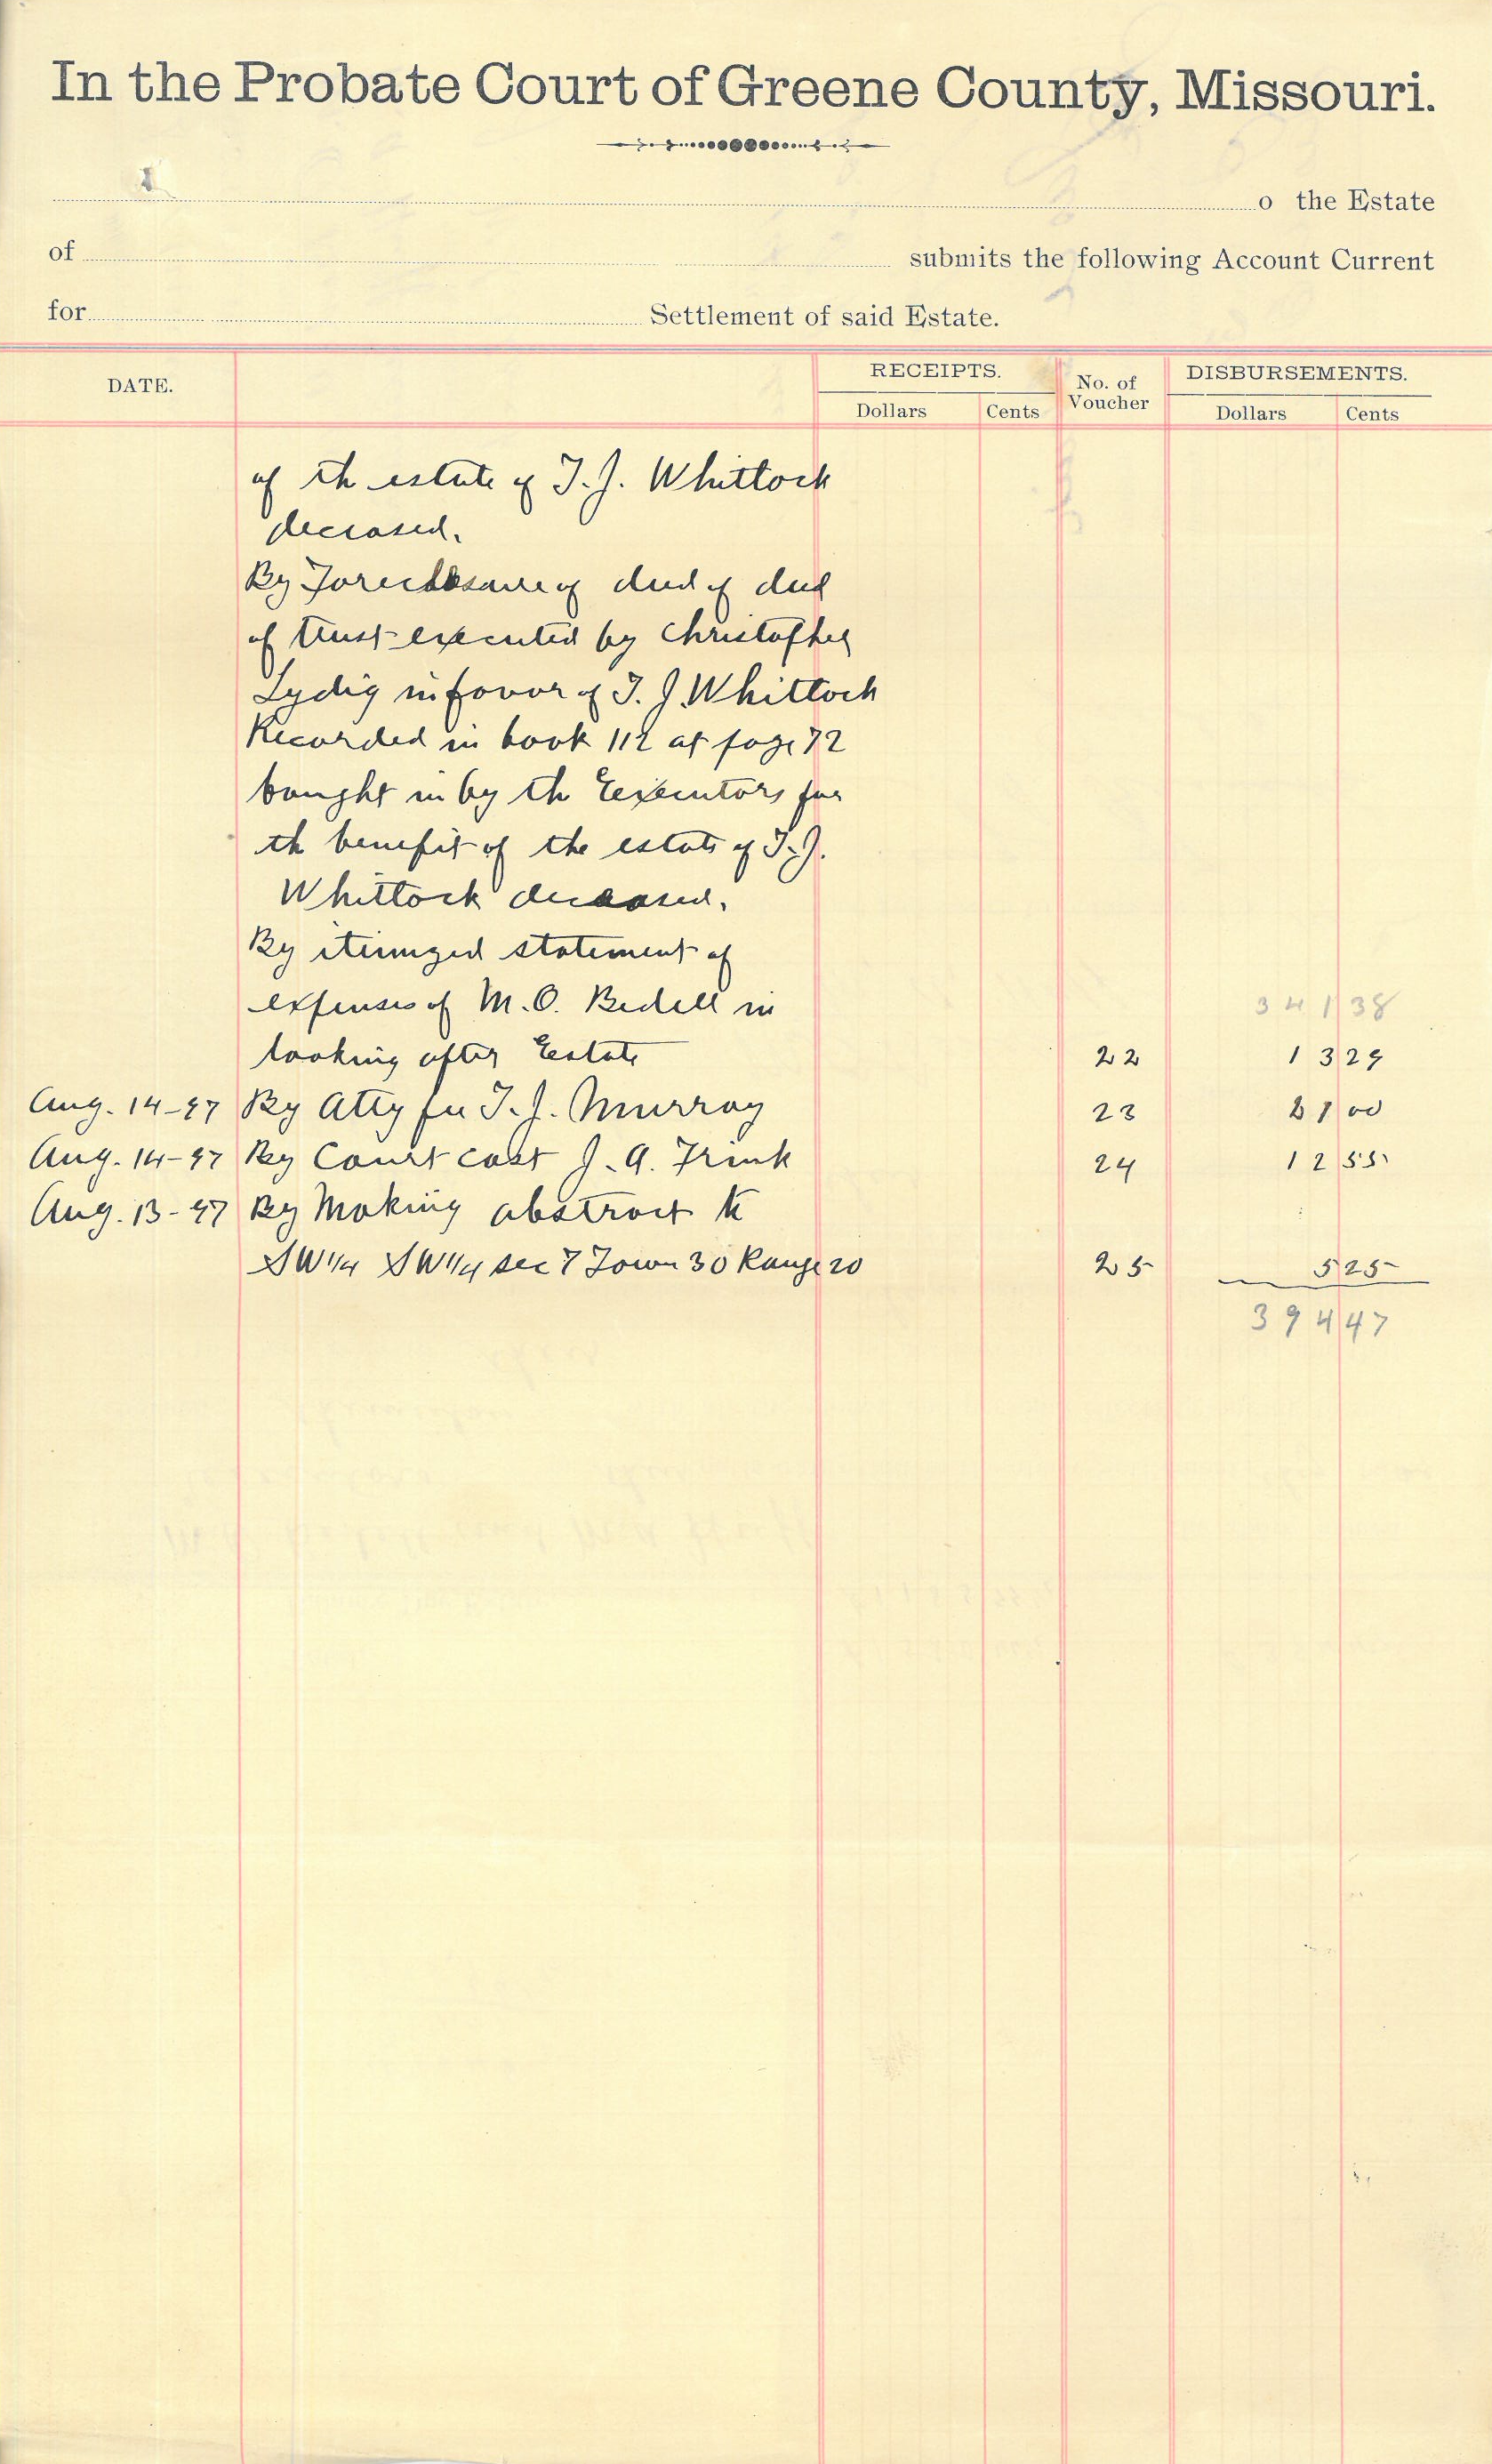 In the Probate Court of Greene County, Missouri.
o the Estate
of submits the following Account Current
for Settlement of said Estate.
DATE. RECEIPTS. No. of Voucher DISBURSEMENTS.
Dollars Cents Dollars Cents
of th estate of T. J. Whitlock
deceased.
By Foreclosure of deed of deed
of trust executed by Christopher
Lydig in favor of T. J. Whitlock
Recorded in book 112 at page 72
bought in by th Executors for
th benefit of the estate of T. J.
Whitlock deceased.
By itemized statement of
expenses of M. O. Bedell in 341 38
looking after Estate 22 13 29
Aug. 14-97 By Atty fee T. J. Murray 23 21 00
Aug. 14-97 By Court cost J. A. Frink 24 12 55
Aug. 13-97 By Making abstract to
SW 1/4 SW 1/4 sec 7 Town 30 Range 20 25 5 25
394 47